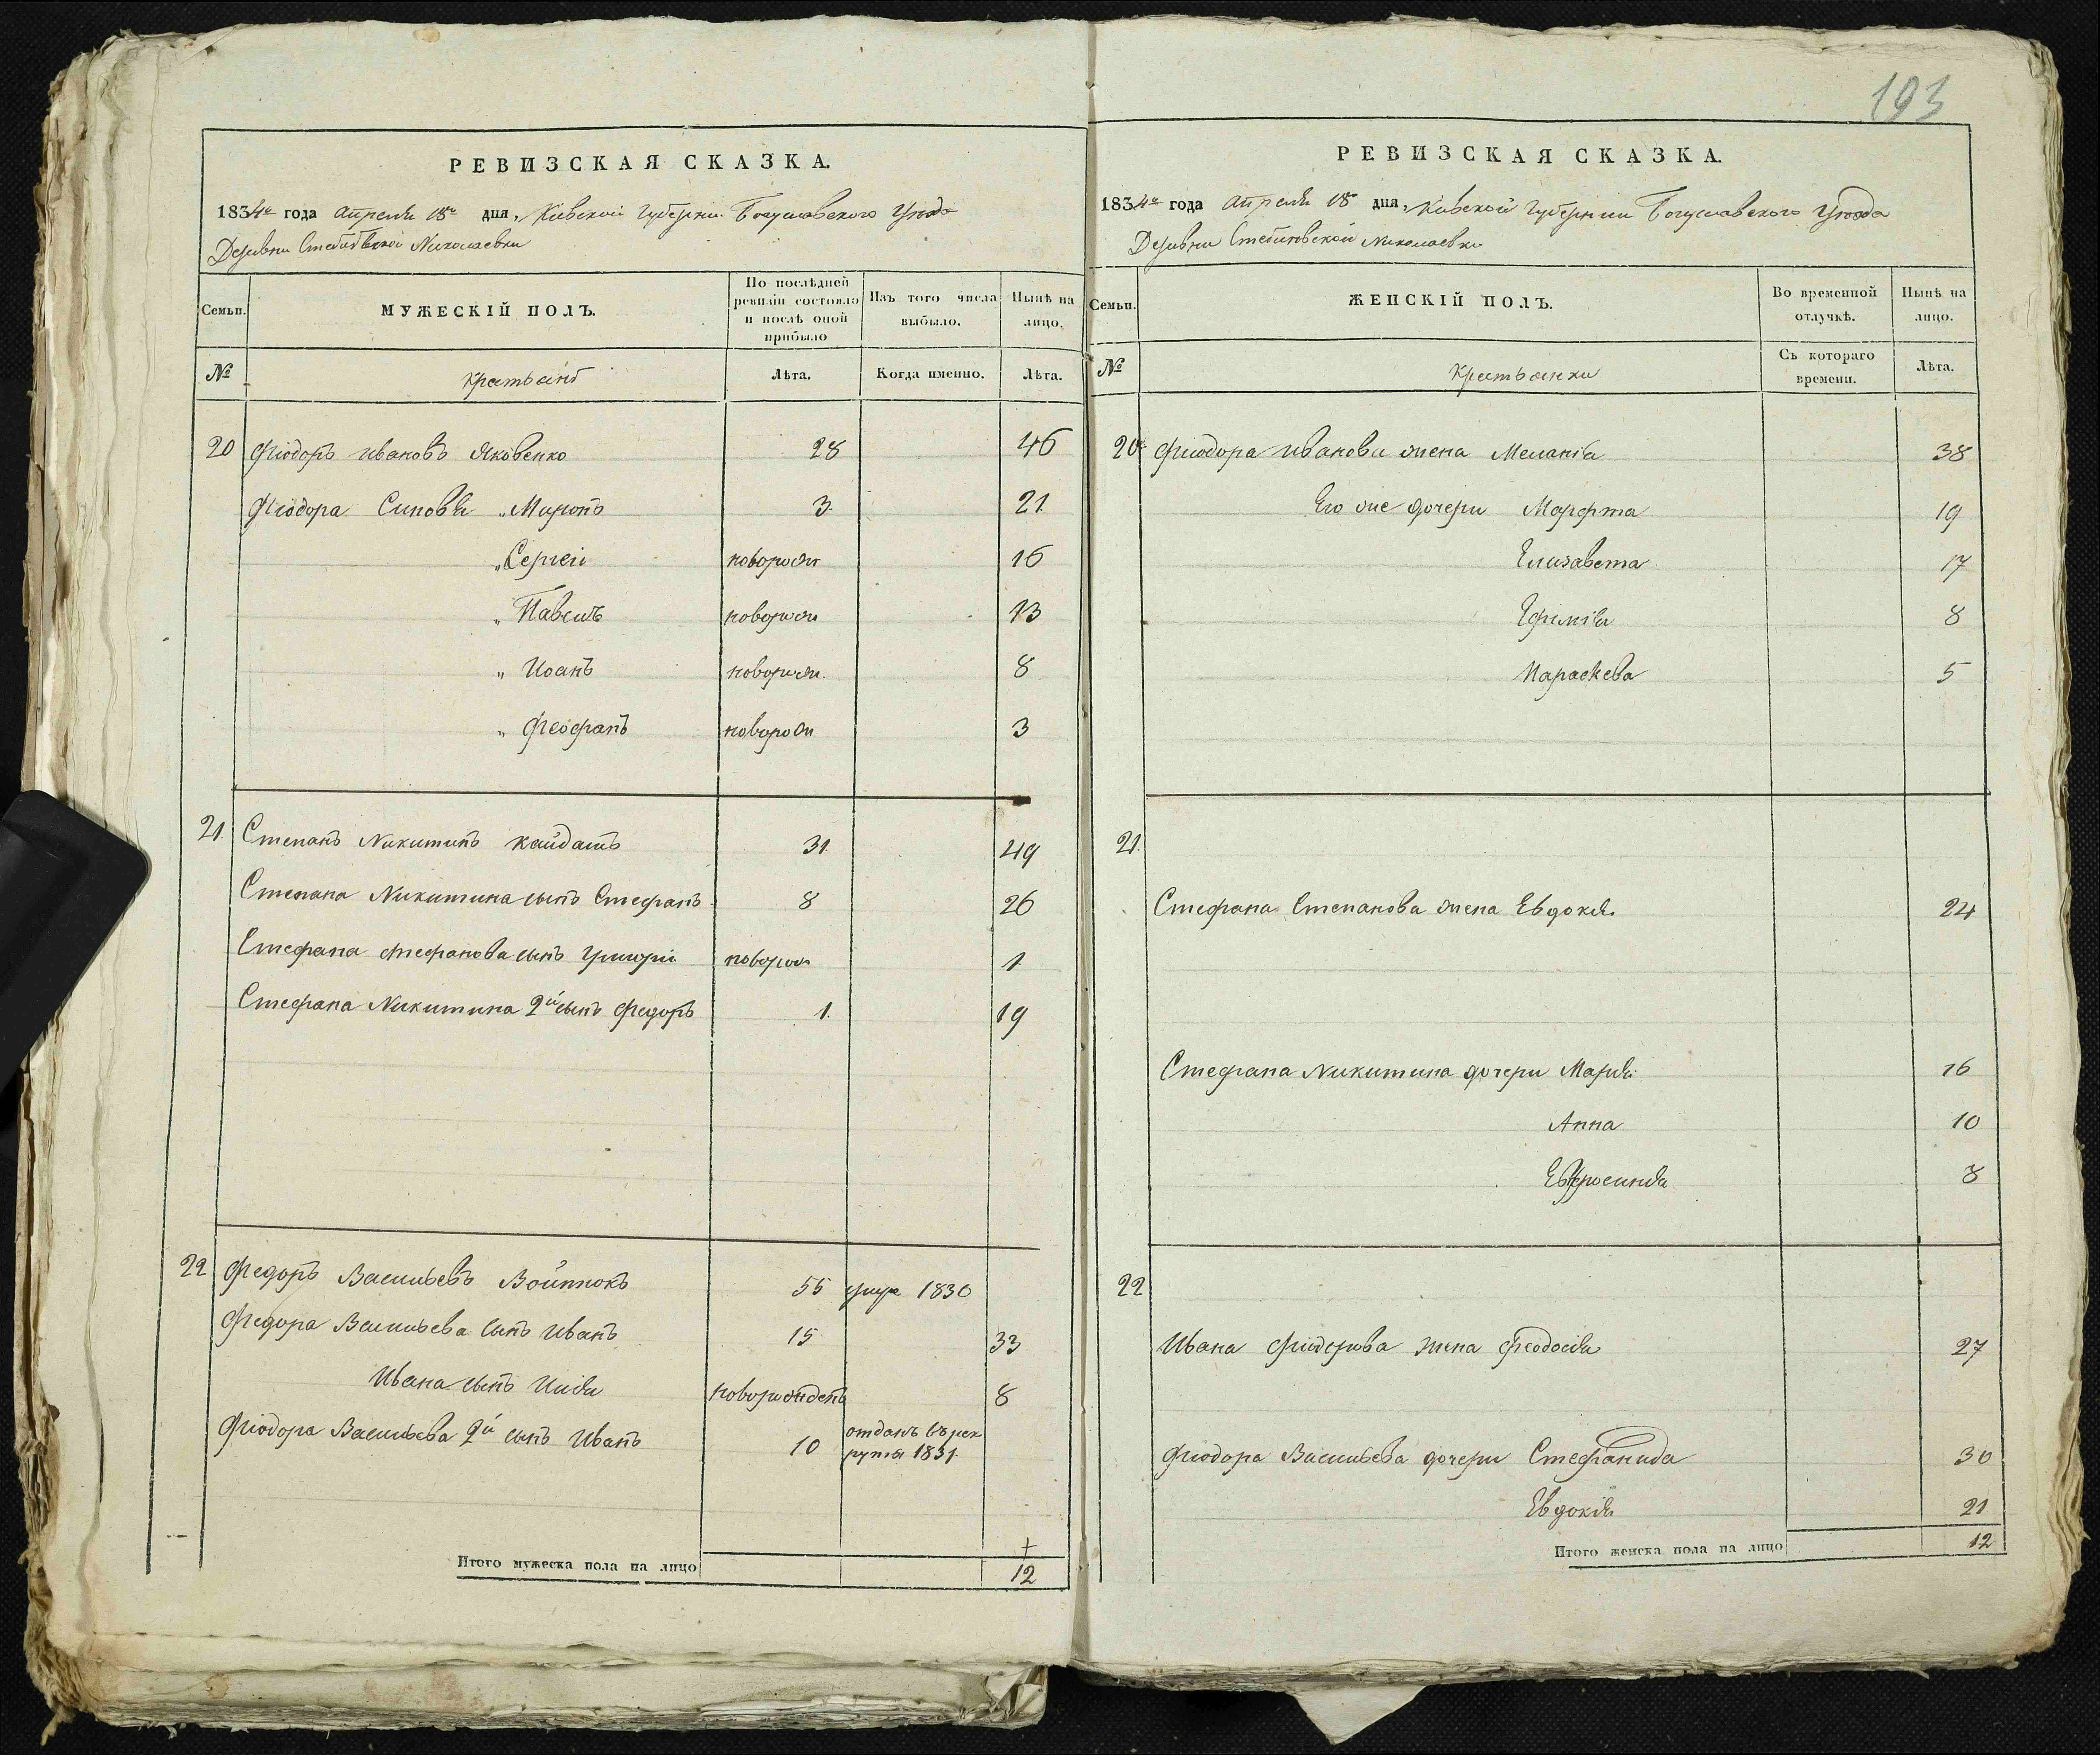 193
РЕВИЗСКАЯ СКАЗКА.
1834го года Апреля 18го дня, Киевской Губернии Богуславского Уезда
Деревни Стебловской Николаевки
Семьи.
МУЖЕСКІЙ ПОЛЪ.
По послѣдней ревизіи состояло и послѣ оной прибыло
Изъ того числа выбыло.
Нынѣ на лицо.
№
Крестьянъ
Лѣта.
Когда именно.
Лѣта.
20 Фіодоръ Ивановъ Яковенко 28 46
Фіодора Синовья „ Миронъ 3 21
„ Сергей новорож 16
„ Павелъ новорож 13
„ Иоанъ новорож 8
„ Феофанъ новорож 3
21. Степанъ Никитинъ Кайдашъ 31 49
Степана Никитина сынъ Стефанъ 8 26
Стефана Стефанова сынъ Григори новорож 1
Стефана Никитина 2й сынъ Федоръ 1. 19
22 Федоръ Васильевъ 55 умре 1830
Федора Васильева сынъ Иванъ 15 33
Ивана сынъ Илія новорожденъ 8
Фіодора Васильева 2й сынъ Иванъ 10 отданъ въ рек
руты 1831.
Итого мужеска пола на лицо 12
РЕВИЗСКАЯ СКАЗКА.
1834го года Апреля 18 дня, Киевской Губернии Богуславского Уезда
Деревни Стебловской Николаевки
Семьи.
ЖЕНСКІЙ ПОЛЪ.
Во временной отлучкѣ.
Нынѣ на лицо.
№
Крестьянки
Съ котораго времени.
Лѣта.
20 Фіодора Иванова жена Меланія 38
Его же дочери Марфта 19
Елизавета 17
Ефимія 8
Параскева 5
21.
Стефана Степанова жена Евдокія 24
Стефана Никитина дочери Марія 16
Анна 10
Евфросинія 8
22
Ивана Фіодорова жена Феодосія 27
Фіодора Васильева дочери Стефанида 30
Евдокія 21
Итого женска пола на лицо 12